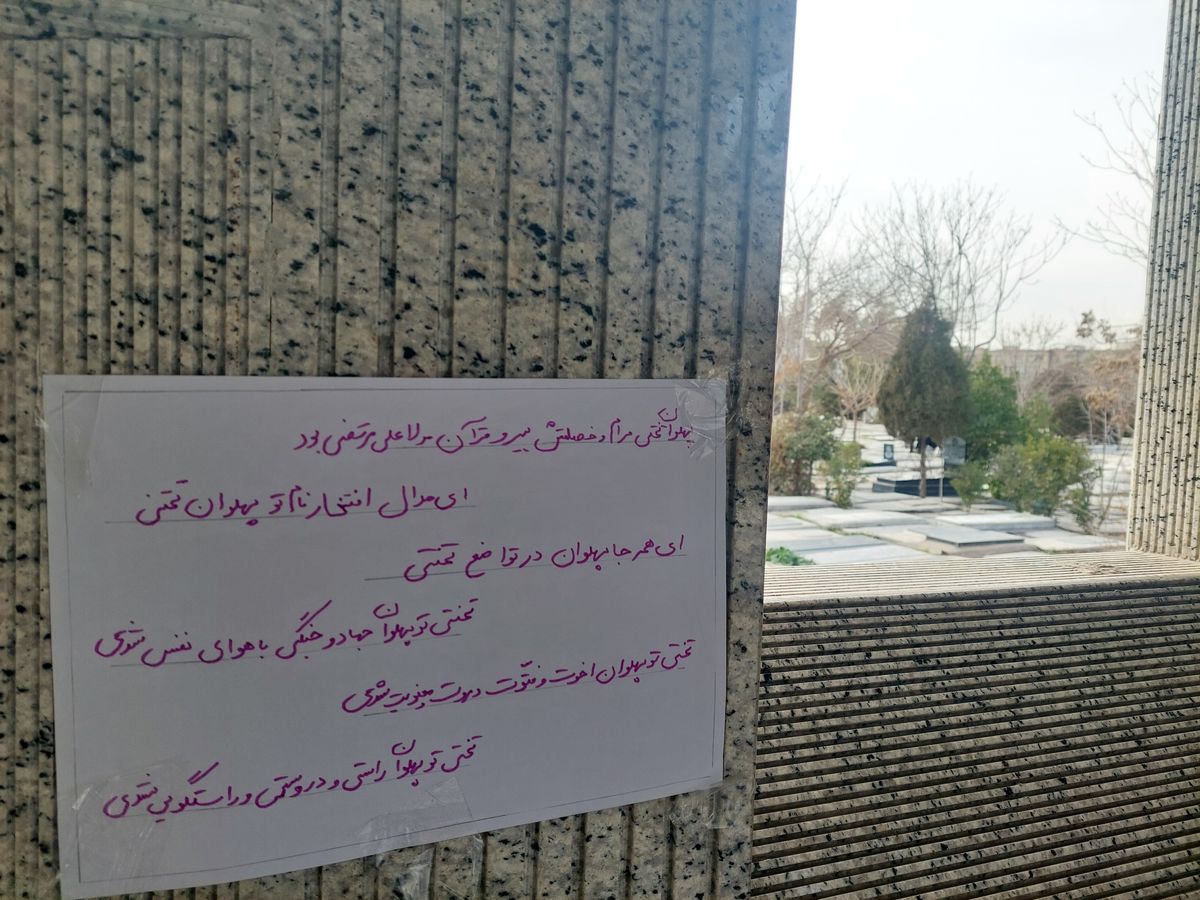 پهلوان تختی مرام و خصلتش پیرو قرآن مولا علی مرتضی بود
ای مدال افتخار نام تو پهلوان تختی
ای همه جا پهلوان در تواضع تختی
تختی تو پهلوان جهاد و جنگی با هوای نفس شدی
تختی تو پهلوان اخوت و فتوت و معنویت شدی
تختی تو پهلوان راستی و دروستی و راستگویی شدی